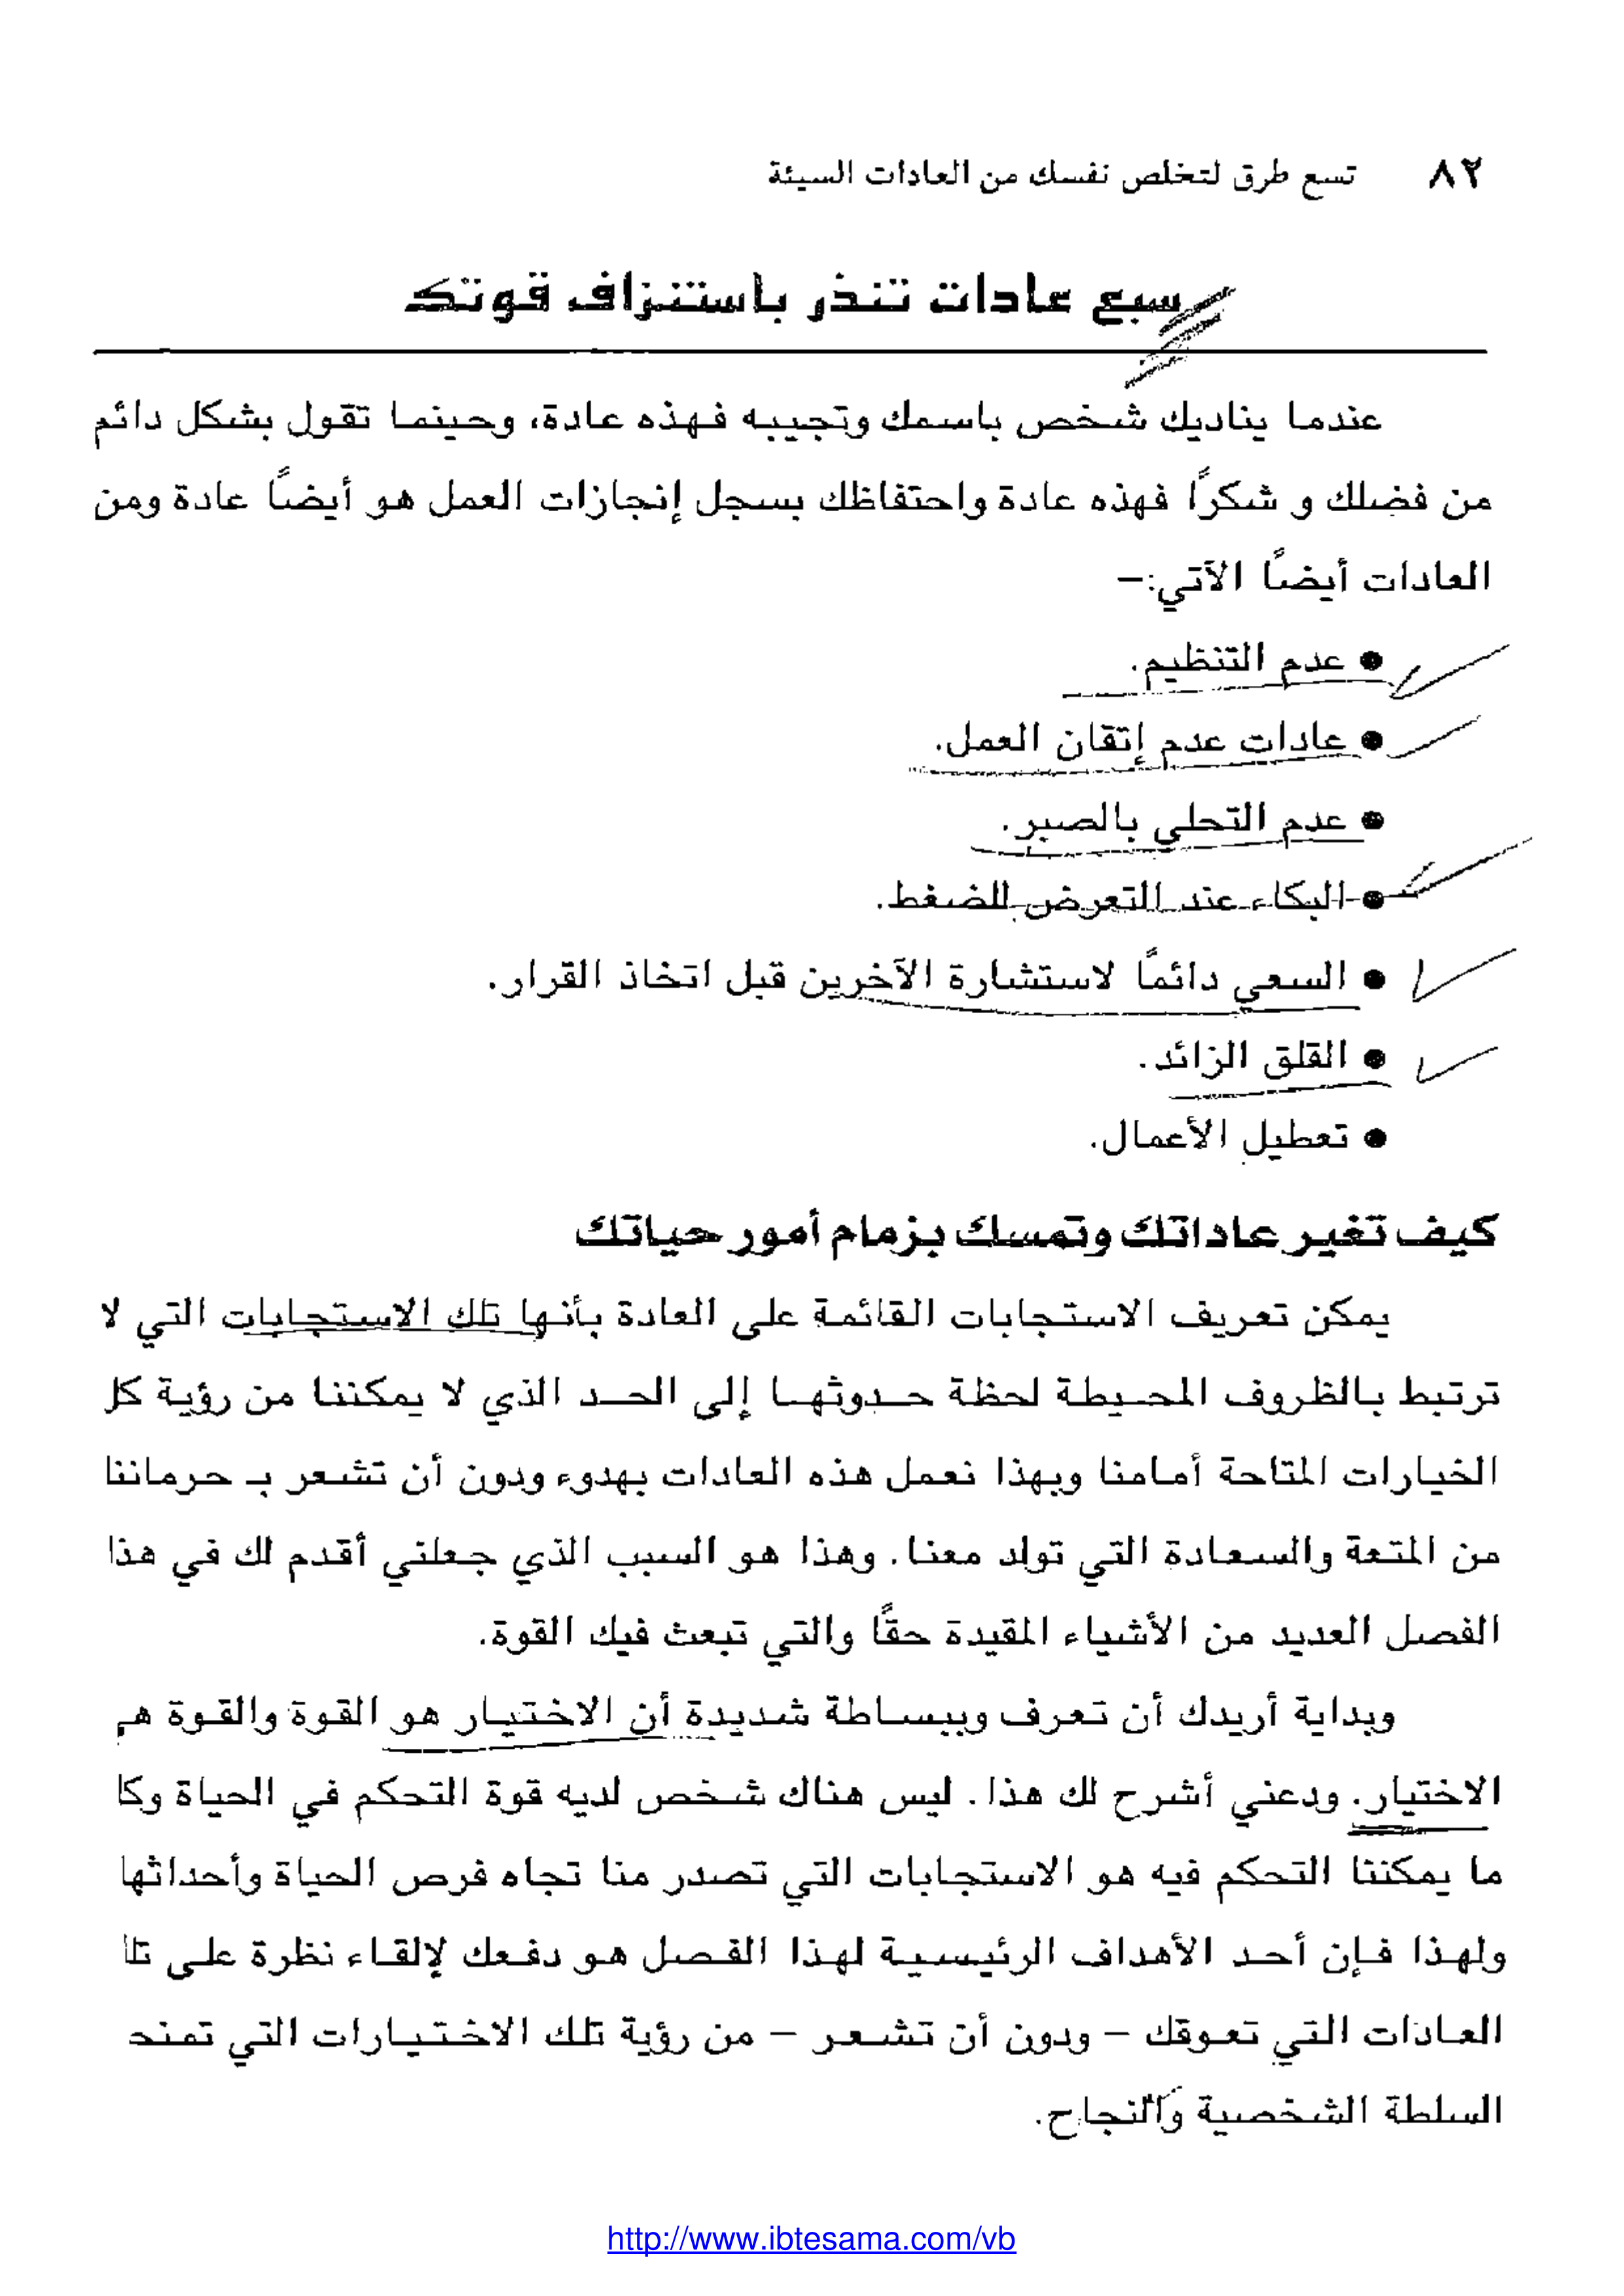 ٨٢ تسع طرق لتخلص نفسك من العادات السيئة
سبع عادات تنذر باستنزاف قوتك
عندما يناديك شخص باسمك وتجيبه فهذه عادة، وحينما تقول بشكل دائم
من فضلك و شكراً فهذه عادة واحتفاظك بسجل إنجازات العمل هو أيضاً عادة ومن
العادات أيضاً الآتي:–
● عدم التنظيم.
● عادات عدم إتقان العمل.
● عدم التحلي بالصبر.
● البكاء عند التعرض للضغط.
● السعي دائماً لاستشارة الآخرين قبل اتخاذ القرار.
● القلق الزائد.
● تعطيل الأعمال.
كيف تغير عاداتك وتمسك بزمام أمور حياتك
يمكن تعريف الاستجابات القائمة على العادة بأنها تلك الاستجابات التي لا
ترتبط بالظروف المحيطة لحظة حدوثها إلى الحد الذي لا يمكننا من رؤية كل
الخيارات المتاحة أمامنا وبهذا نعمل هذه العادات بهدوء ودون أن تشعر بـ حرماننا
من المتعة والسعادة التي تولد معنا. وهذا هو السبب الذي جعلني أقدم لك في هذا
الفصل العديد من الأشياء المقيدة حقاً والتي تبعث فيك القوة.
وبداية أريدك أن تعرف وببساطة شديدة أن الاختيار هو القوة والقوة هي
الاختيار. ودعني أشرح لك هذا. ليس هناك شخص لديه قوة التحكم في الحياة وكا
ما يمكننا التحكم فيه هو الاستجابات التي تصدر منا تجاه فرص الحياة وأحداثها
ولهذا فإن أحد الأهداف الرئيسية لهذا الفصل هو دفعك لإلقاء نظرة على تلا
العادات التي تعوقك – ودون أن تشعر – من رؤية تلك الاختيارات التي تمنحـ
السلطة الشخصية والنجاح.
http://www.ibtesama.com/vb